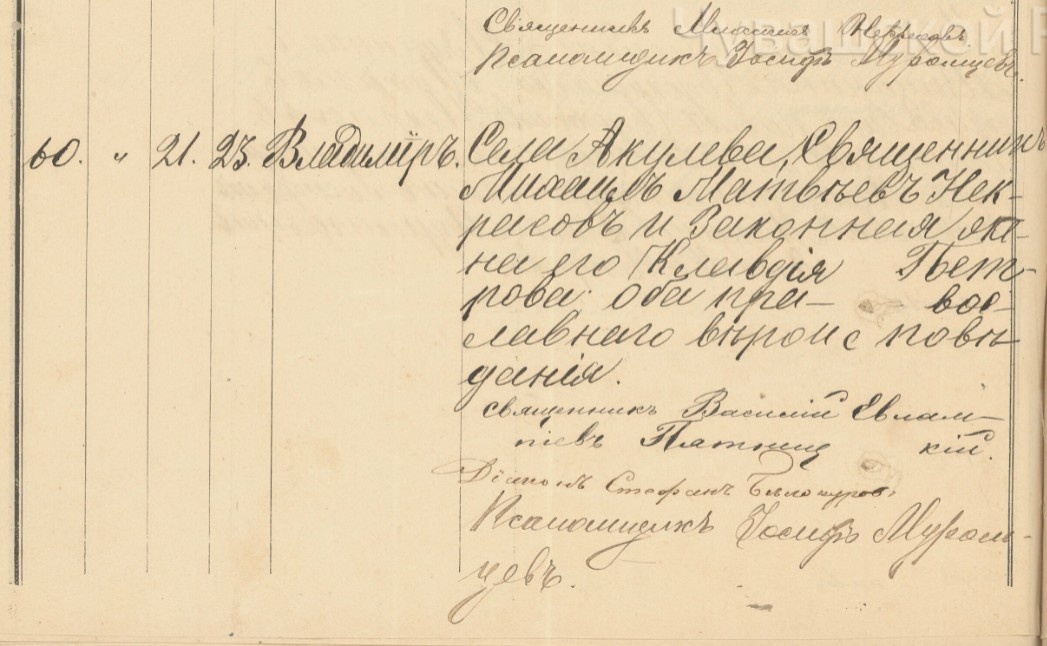 Чувашской Р
Священникъ Михаилъ Некрасовъ
Псаломщикъ Іосифъ Муромцевъ.
60. „ 21. 23. Владиміръ. Села Акулева, Священникъ
Михаилъ Матвѣевъ Нек-
расовъ и Законная же-
на его Клавдія Пет-
рова. оба пра- вос-
лавнаго вѣроисповѣ
данія.
священникъ Василій Евлам-
піевъ Пятниц кій.
Діаконъ Стефанъ Бѣлокуровъ
Псаломщикъ Іосифъ Муром-
цевъ.